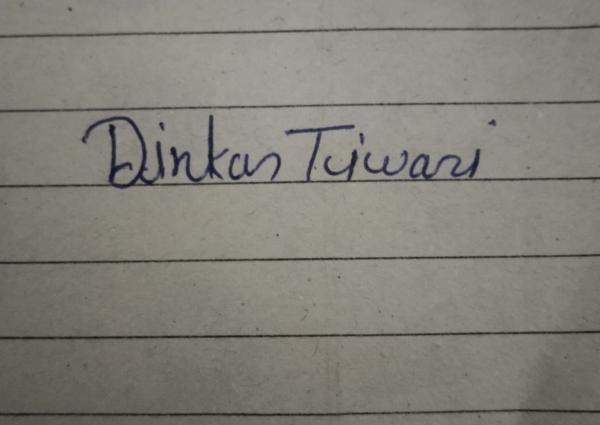 Dinkar Tiwari